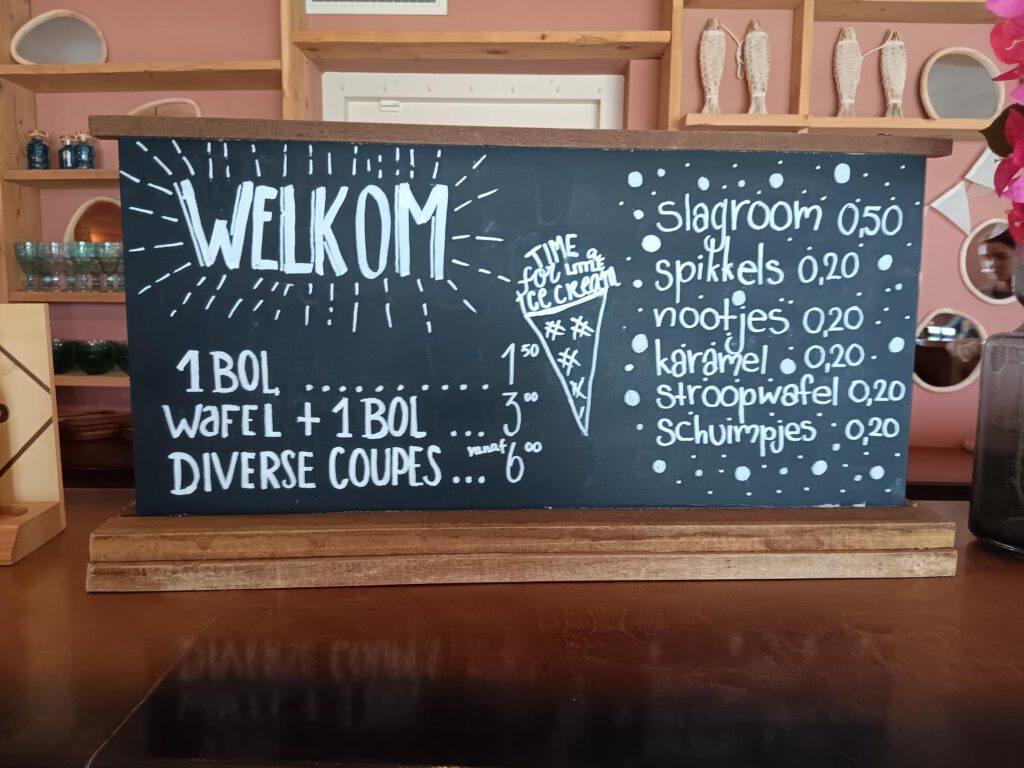 WELKOM
1 BOL .......... 1 50
WAFEL + 1 BOL ... 3 00
DIVERSE COUPES ... vanaf 6 00
TIME
for a little
ICE CREAM
slagroom 0,50
spikkels 0,20
nootjes 0,20
karamel 0,20
stroopwafel 0,20
schuimpjes 0,20